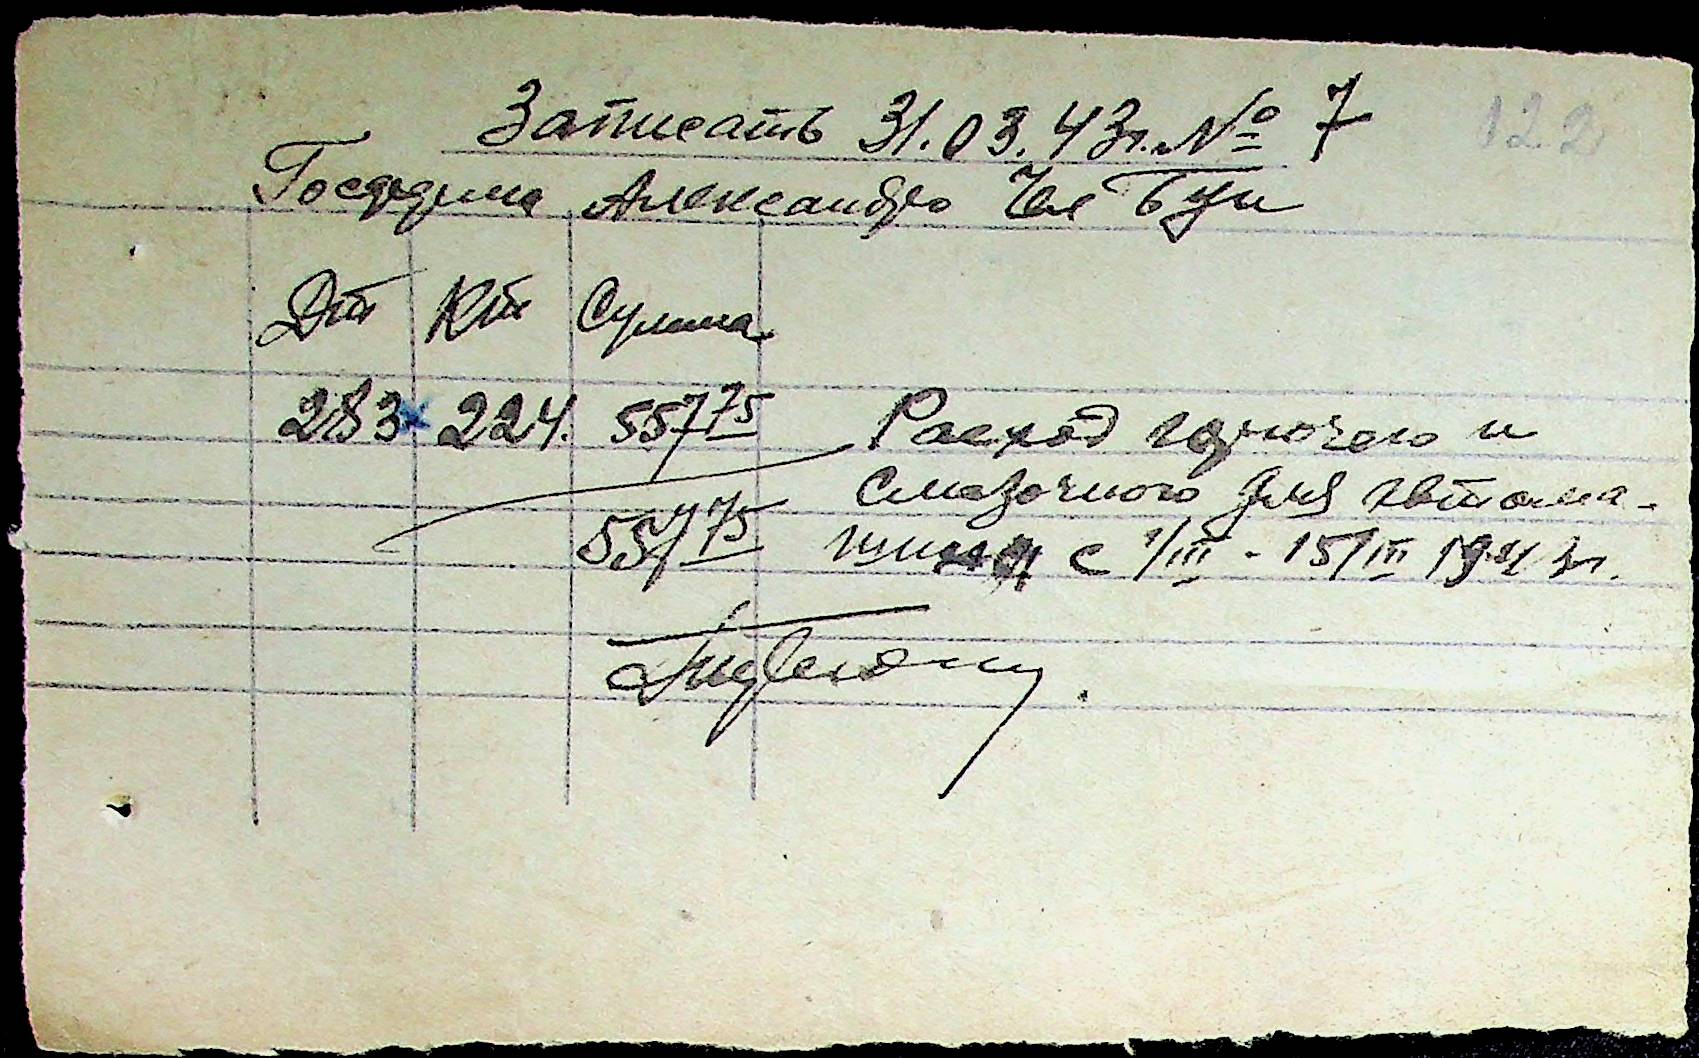 Записать 31.03.43г. № 7
122
Госдодима Александро
Дт Кт Сумма
283 224. 557 75 Расход горючего и
557 75 смазочного для автома-
шины с 1/III - 15/III 1943г.